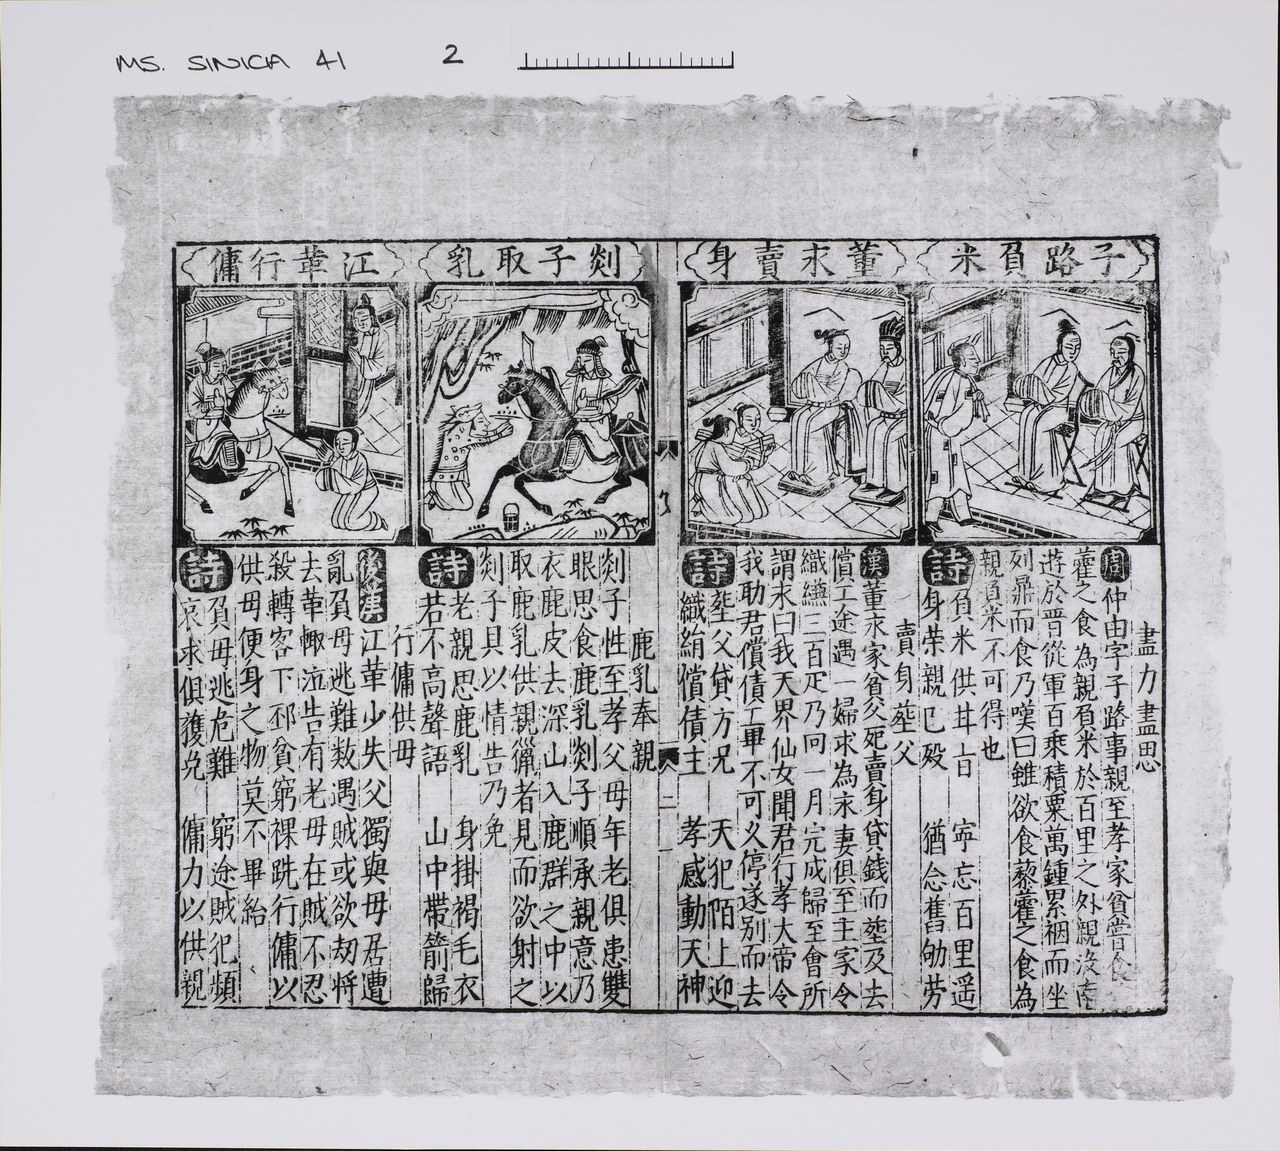 MS. SINICA 41
2
子路負米
董永賣身
剡子取乳
江革行傭
盡力盡思
周 仲由字子路事親至孝家貧嘗食
藿之食為親負米於百里之外親沒南
遊於晉從軍百乘積粟萬鍾累裀而坐
列鼎而食乃嘆曰雖欲食藜藿之食為
親負米不可得也
詩 負米供甘旨 寜忘百里遥
身荣親已殁 猶念舊劬劳
賣身塟父
漢 董永家貧父死賣身貸錢而塟及去
償工途遇一婦求為永妻俱至主家令
織縑三百疋乃囘一月完成歸至會所
謂永曰我天界仙女聞君行孝大帝令
我助君償債工畢不可久停遂别而去
詩 塟父貸方兄 天犯陌上迎
織絹償債主 孝感動天神
二
鹿乳奉親
剡子性至孝父母年老俱患雙
眼思食鹿乳剡子順承親意乃
衣鹿皮去深山入鹿群之中以
取鹿乳供親獵者見而欲射之
剡子具以情告乃免
詩 老親思鹿乳 身掛褐毛衣
若不高聲語 山中帶箭歸
行傭供母
後漢 江革少失父獨與母居遭
亂負母逃難数遇賊或欲刼將
去革輙泣告有老母在賊不忍
殺轉客下邳貧窮裸跣行傭以
供母便身之物莫不畢給
詩 負母逃危難 窮途賊犯頻
哀求俱獲免 傭力以供親